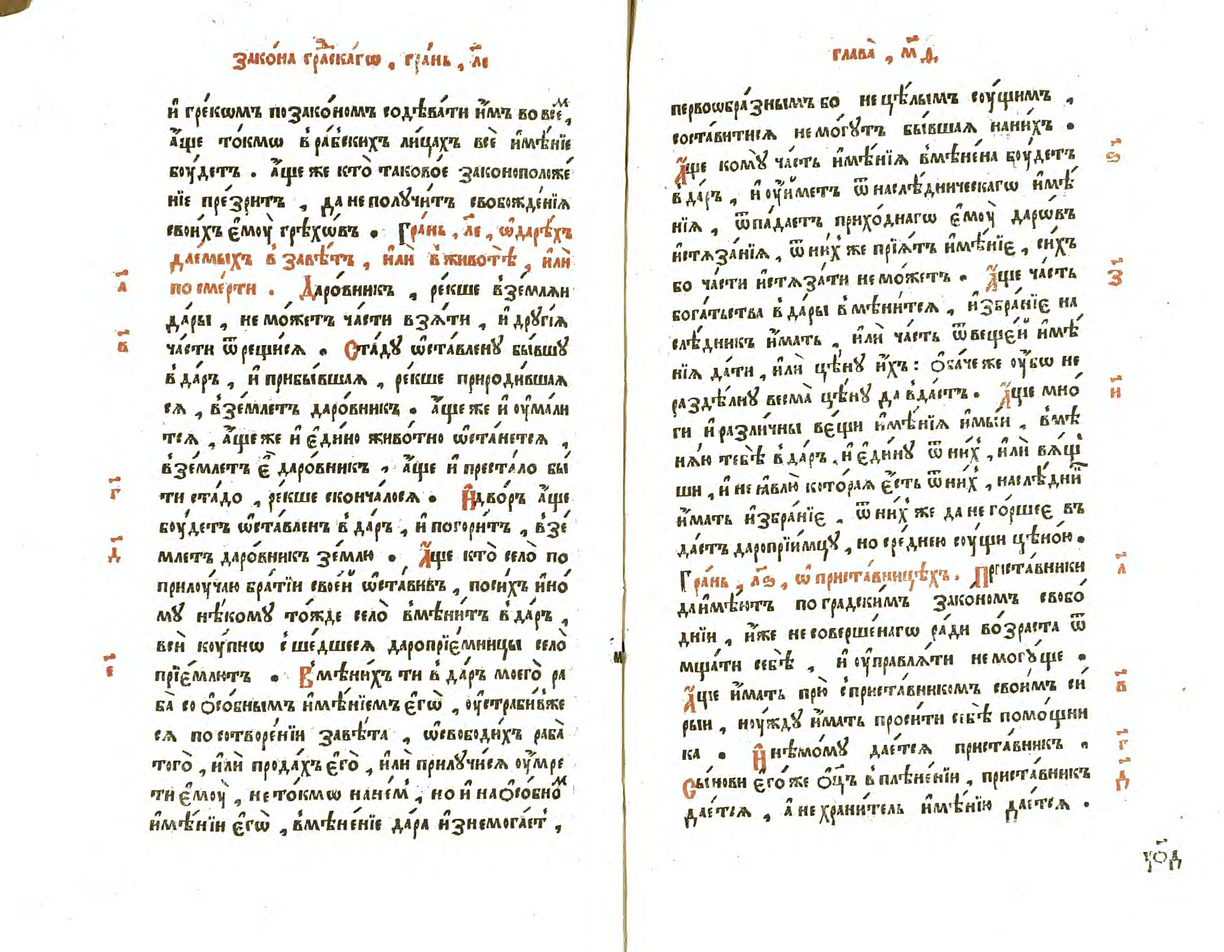 Зако́на гра̑дскагѡ , гра́нь , л҃е
и҆ гре́кѡмъ по зако́номъ содѣва́ти и҆̀мъ во все́м ,
а҆́ще то́кмѡ в ра́бскихъ ли́цахъ всѐ и҆мѣ́нїе
бꙋ́детъ . а҆́ще же кто̀ таково́е законоположе́
нїе пре́зритъ , да не полꙋ́читъ свобожде́нїѧ
свои́хъ є҆мꙋ̀ грѣхѡ́въ . Гра́нь , л҃е , ѡ҆ да́рѣхъ
дае́мыхъ в завѣ́тъ , и҆лѝ в животѣ̀ , и҆лѝ
а҃
по сме́рти . Даро́вникъ , ре́кше взе́млѧи
да́ры , не мо́жетъ ча́сти взѧ́ти , и҆ дрꙋгі́ѧ
в҃
ча́сти ѿрещи́сѧ . Ста́дꙋ ѡ҆ста́вленꙋ бы́вшꙋ
в да́ръ , и҆ прибы́вшаѧ , ре́кше природи́вшаѧ
сѧ , взе́млетъ даро́вникъ . а҆́ще же и҆ ᲂу҆мали
тсѧ , а҆́ще же и҆ є҆ди́но живо́тно ѡ҆ста́нетсѧ ,
взе́млетъ є҆̀ даро́вникъ , а҆́ще и҆ преста́ло бы́
г҃
ти ста́до , ре́кше сконча́лосѧ . И҆ дво́ръ а҆́ще
бꙋ́детъ ѡ҆ста́вленъ в да́ръ , и҆ погори́тъ , взе́
д҃
млетъ даро́вникъ зе́млю . А҆́ще кто̀ село̀ по
прилꙋ́чаю бра́тїи свое́й ѡ҆ста́вивъ , по си́хъ и҆но́
мꙋ нѣ́комꙋ то́жде село̀ вмѣни́тъ в да́ръ ,
всѝ кꙋ́пнѡ сше́дшесѧ даропрїе́мницы село̀
е҃
прїе́млютъ . Вмѣни́хъ ти в да́ръ моего̀ ра
ба̀ со ѻ҆со́бнымъ и҆мѣ́нїемъ є҆гѡ̀ , ᲂу҆страби́вже
сѧ по сотворе́нїи завѣ́та , ѡ҆свободи́хъ раба̀
того̀ , и҆лѝ прода́хъ є҆го̀ , и҆лѝ прилꙋчи́сѧ ᲂу҆мре́
ти є҆мꙋ̀ , не то́кмѡ на не́м , но и҆ на ѻ҆со́бном
и҆мѣ́нїи є҆гѡ̀ , вмѣне́нїе да́ра и҆знемога́ет ,
глава̀ , м҃д ,
первоѡбра́знымъ бо не цѣ́лымъ сꙋ́щимъ ,
соста́витисѧ не мо́гꙋтъ бы́вшаѧ на ни́хъ .
ѕ҃
А҆́ще комꙋ̀ ча́сть и҆мѣ́нїѧ вмѣне́на бꙋ́детъ
в да́ръ , и҆ ᲂу҆́иметъ ѿ наслѣ́дническагѡ и҆мѣ́
нїѧ , ѿпа́даетъ прихо́днагѡ є҆мꙋ̀ дарѡ́въ
и҆стѧза́нїѧ , ѿ ни́хже прїѧ́тъ и҆мѣ́нїе , си́хъ
з҃
бо ча́сти и҆стѧза́ти не мо́жетъ . А҆́ще ча́сть
бога́тьства в да́ры вмѣни́тсѧ , и҆збра́нїе на
слѣ́дникъ и҆́мать , и҆лѝ ча́сть ѿ веще́й и҆мѣ́
нїѧ да́ти , и҆лѝ цѣ́нꙋ и҆́хъ : Ѻ҆ба́че же ᲂу҆́бѡ не
и҃
раздѣ́лнꙋ весма̀ цѣ́нꙋ да вда́стъ . А҆́ще мно́
ги и҆ разли́чны ве́щи и҆мѣ́нїѧ и҆мы́и , вмѣ
нѧ́ю тебѣ̀ в да́ръ , и҆ є҆ди́нꙋ ѿ ни́х , и҆лѝ вѧ́щ
ши , и҆ не ꙗ҆влю̀ кото́раѧ є҆́сть ѿ ни́х , наслѣ́дни
и҆́мать и҆збра́нїе , ѿ ни́хже да не го́ршее въ
да́стъ даропрїи́мцꙋ , но сре́днею сꙋ́щи цѣно́ю .
л҃
Гра́нь , л҃ѕ , ѡ҆ приста́вницѣхъ . Приста́вники
да и҆мѣ́ютъ по гра́дскимъ зако́номъ свобо́
днїи , и҆́же не соверше́нагѡ ра́ди во́зраста ѿ
мща́ти себѣ̀ , и҆ ᲂу҆правлѧ́ти не могꙋ́ще .
в҃
А҆́ще и҆́мать прю̀ с приста́вникомъ свои́мъ си́
рыи , нꙋ́ждꙋ и҆́мать проси́ти себѣ̀ помо́щни
г҃
ка . И҆ нѣмо́мꙋ дае́тсѧ приста́вникъ .
д҃
Сы́нови є҆го́же ѻ҆ц҃ъ в плѣне́нїи , приста́вникъ
дае́тсѧ , а҆ не храни́тель и҆мѣ́нїю дае́тсѧ .
уо҃д